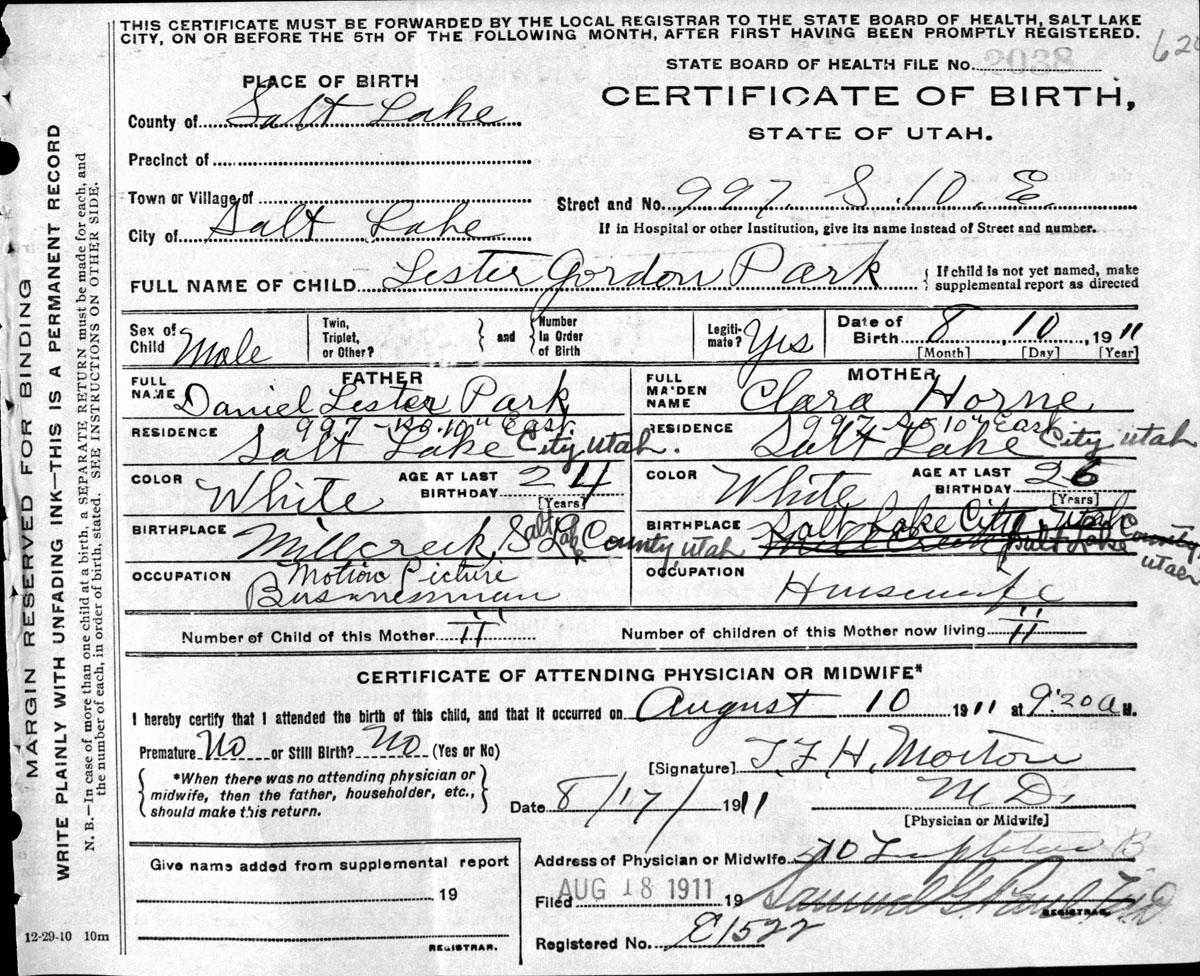 THIS CERTIFICATE MUST BE FORWARDED BY THE LOCAL REGISTRAR TO THE STATE BOARD OF HEALTH, SALT LAKE
CITY, ON OR BEFORE THE 5TH OF THE FOLLOWING MONTH, AFTER FIRST HAVING BEEN PROMPTLY REGISTERED.
STATE BOARD OF HEALTH FILE No. 2038
PLACE OF BIRTH
CERTIFICATE OF BIRTH,
STATE OF UTAH.
County of Salt Lake
Precinct of
Town or Village of
Street and No. 997 S. 10. E.
City of Salt Lake
If in Hospital or other Institution, give its name instead of Street and number.
FULL NAME OF CHILD Lester Gordon Park
{ If child is not yet named, make
supplemental report as directed
Sex of Child Male
Twin, Triplet, or Other? } and { Number In Order of Birth
Legiti-mate? Yes
Date of Birth 8, 10, 1911
[Month] [Day] [Year]
FATHER
FULL NAME Daniel Lester Park
RESIDENCE 997 - So. 10" East
Salt Lake City Utah.
COLOR White AGE AT LAST BIRTHDAY 24
[Years]
BIRTHPLACE Millcreek Salt Lake County, Utah
OCCUPATION Motion Picture
Businessman
MOTHER
FULL MAIDEN NAME Clara Horne
RESIDENCE 997 So 10" East
Salt Lake City Utah
COLOR White AGE AT LAST BIRTHDAY 26
[Years]
BIRTHPLACE Salt Lake City, Utah
Mill Creek Salt Lake County, Utah
OCCUPATION Housewife
Number of Child of this Mother II
Number of children of this Mother now living II
CERTIFICATE OF ATTENDING PHYSICIAN OR MIDWIFE*
I hereby certify that I attended the birth of this child, and that it occurred on August 10 1911 at 9:20 a M.
Premature No or Still Birth? No (Yes or No)
[Signature] T. F. H. Morton
{ *When there was no attending physician or
midwife, then the father, householder, etc.,
should make this return. }
Date 8/17/1911
M. D.
[Physician or Midwife]
Give name added from supplemental report
19
REGISTRAR.
Address of Physician or Midwife 510 Templeton B
Filed AUG 18 1911 19 Samuel G. Paul
REGISTRAR.
Registered No. E1522
12-29-10 10m
MARGIN RESERVED FOR BINDING
WRITE PLAINLY WITH UNFADING INK—THIS IS A PERMANENT RECORD
N. B.—In case of more than one child at a birth, a SEPARATE RETURN must be made for each, and
the number of each, in order of birth, stated. SEE INSTRUCTIONS ON OTHER SIDE.